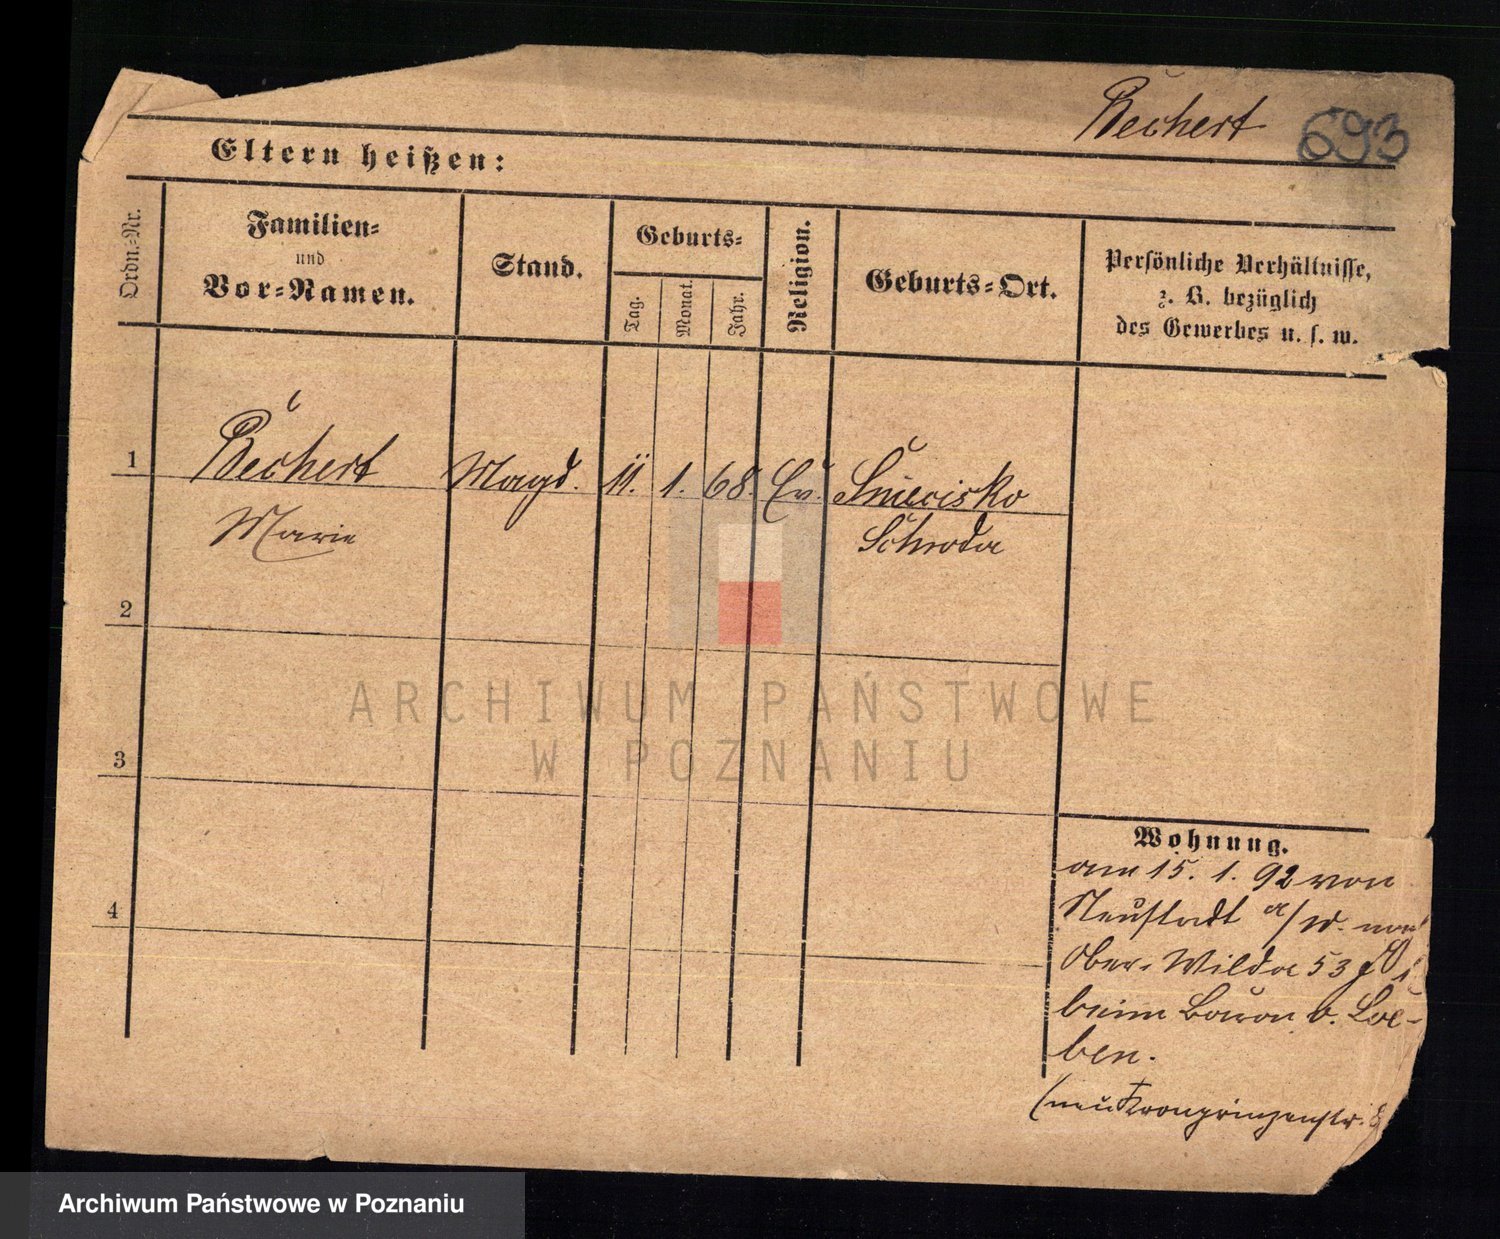 Bechert 693
Eltern heißen:
Ordn.-Nr.
Familien-
und
Vor-Namen.
Stand.
Geburts-
Tag.
Monat.
Jahr.
Religion.
Geburts-Ort.
Persönliche Verhältnisse,
z. B. bezüglich
des Gewerbes u. s. w.
1 Bechert Magd. 11. 1. 68. Ev.
Marie Schroda
2
3
4
Wohnung.
am 15. 1. 92 von
Neustadt a/W. nach
Ober-Wilda 53
beim Baron v. Loe-
ben.
(neu Kronprinzenstr.
ARCHIWUM PAŃSTWOWE
W POZNANIU
Archiwum Państwowe w Poznaniu